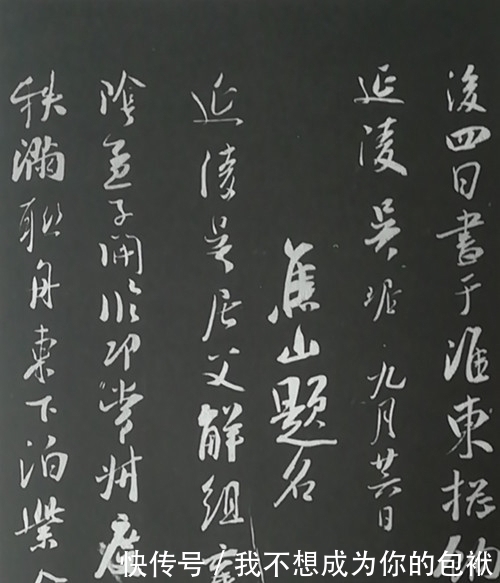 後四日書于淮東揔
延陵吴琚 九月廿六日
焦山題名
延陵吴居父解組
陰孟子開臨邛常
秩滿聯舟東下泊紫
快传号/我不想成为你的包袱